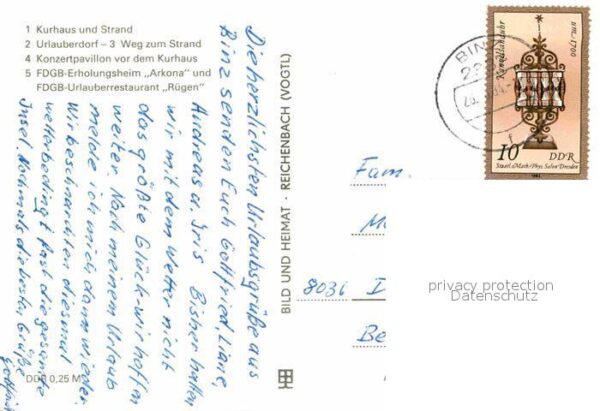 1 Kurhaus und Strand
2 Urlauberdorf – 3 Weg zum Strand
4 Konzertpavillon vor dem Kurhaus
5 FDGB-Erholungsheim „Arkona“ und
FDGB-Urlauberrestaurant „Rügen“
Die herzlichsten Urlaubsgrüße aus
Binz senden Euch Gottfried, Liane,
Andreas u. Iris Bisher hatten
wir mit dem Wetter nicht
das größte Glück – wir hoffen
weiter. Nach meinem Urlaub
melde ich mich dann wieder.
Wir beschnarchten diesmal
wetterbedingt fast die gesamte
Insel. Nochmals die besten Grüße
Gottfried
DDR 0,25 M
BILD UND HEIMAT · REICHENBACH (VOGTL)
BIN
Kanzelsanduhr
um 1700
10 DDR
Staatl. Math.-Phys. Salon Dresden
1983
Fam.
8036 D
Be
privacy protection
Datenschutz